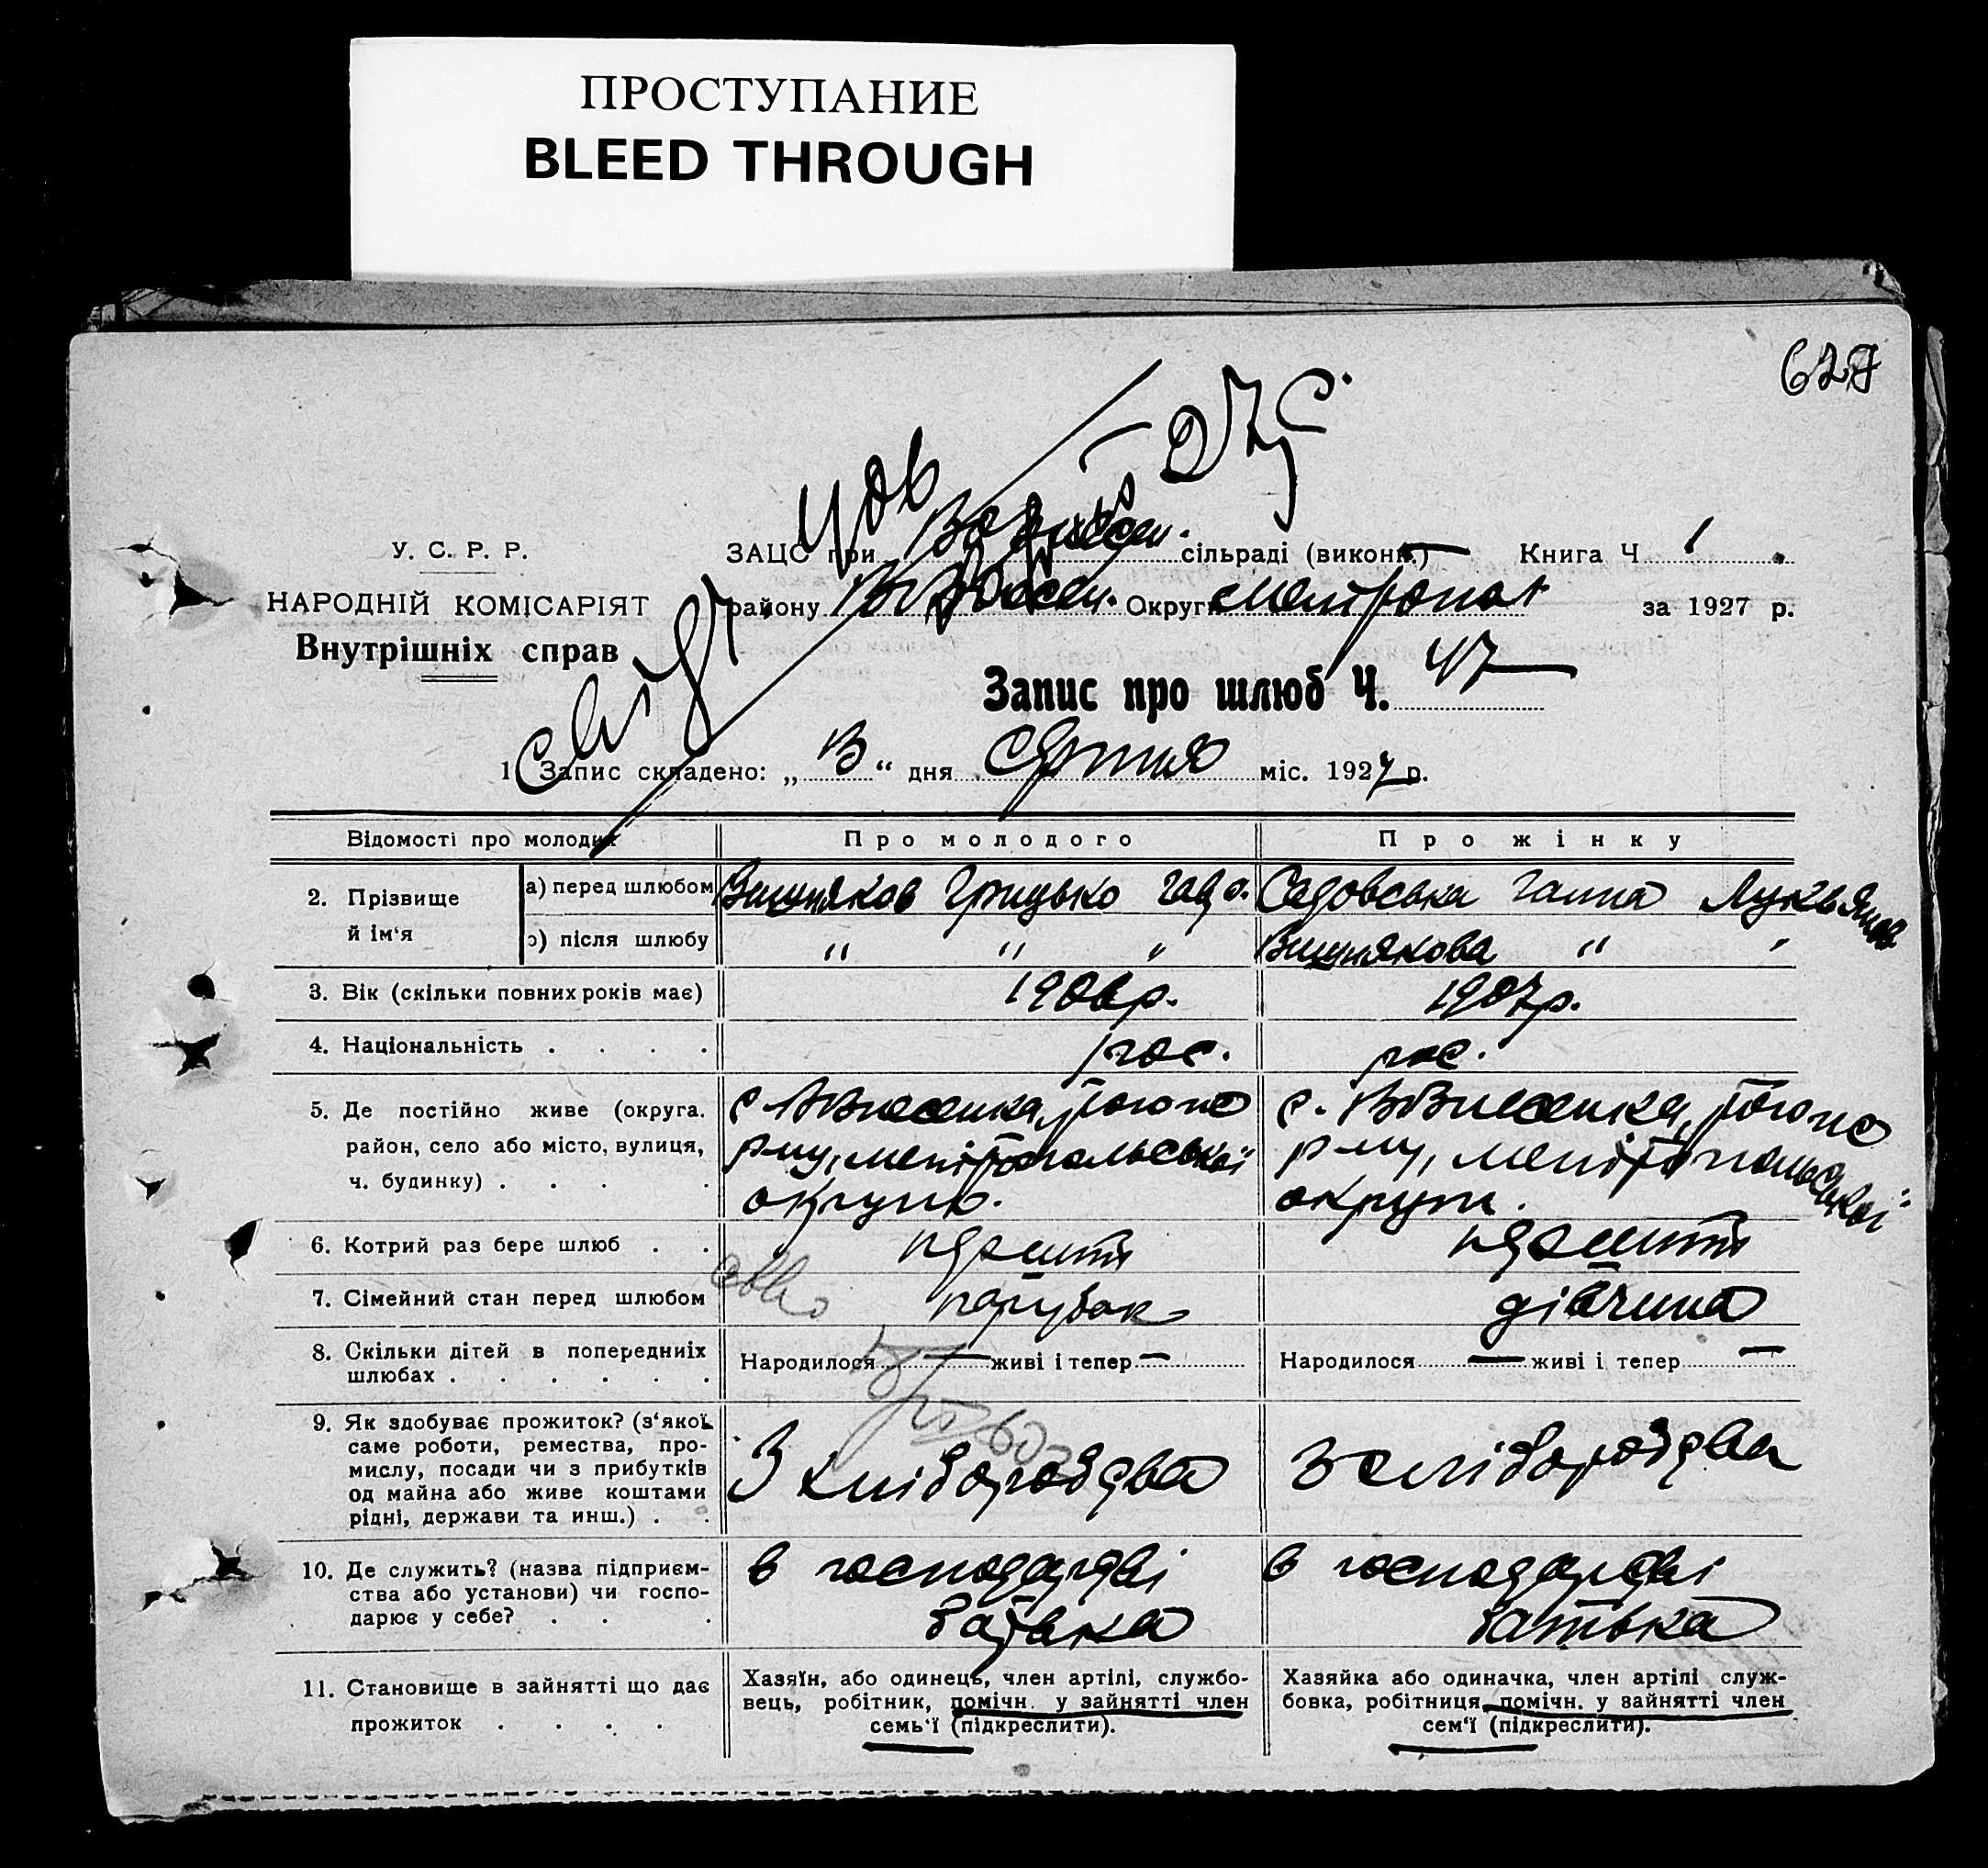 ПРОСТУПАНИЕ
BLEED THROUGH
У. С. Р. Р.
НАРОДНІЙ КОМІСАРІЯТ
Внутрішніх справ
ЗАЦС при сільраді (виконк.) Книга Ч 1.
району Округи за 1927 р.
Запис про шлюб Ч. 47
1. Запис складено: „ “ дня серпня міс. 1927 р.
Відомості про молодих Про молодого Про жінку
2. Прізвище й ім‘я
а) перед шлюбом Вишняков Грицько Садовська Ганна
) після шлюбу " " " Вишнякова " "
3. Вік (скільки повних років має) 1906р. 1907р.
4. Національність . . . . рос. рос.
5. Де постійно живе (округа. район, село або місто, вулиця, ч. будинку) . . .
с. р-ну, мелітопольської округи.
с. р-ну, мелітопольської округи.
6. Котрий раз бере шлюб . . перший перший
7. Сімейний стан перед шлюбом парубок дівчина
8. Скільки дітей в попередниіх шлюбах . . . . . .
Народилося — живі і тепер —
Народилося — живі і тепер —
9. Як здобуває прожиток? (з‘якої
саме роботи, ремества, про-
мислу, посади чи з прибутків
од майна або живе коштами
рідні, держави та инш.) . .
З хліборобства
З хліборобства
10. Де служить? (назва підприєм-
ства або установи) чи госпо-
дарює у себе? . . .
в господарстві
батька
в господарстві
батька
11. Становище в зайнятті що дає
прожиток . . . .
Хазяїн, або одинець, член артілі, службо-
вець, робітник, помічн. у зайнятті член
семь‘ї (підкреслити).
Хазяйка або одиначка, член артілі служ-
бовка, робітниця помічн. у зайнятті член
сем‘ї (підкреслити).